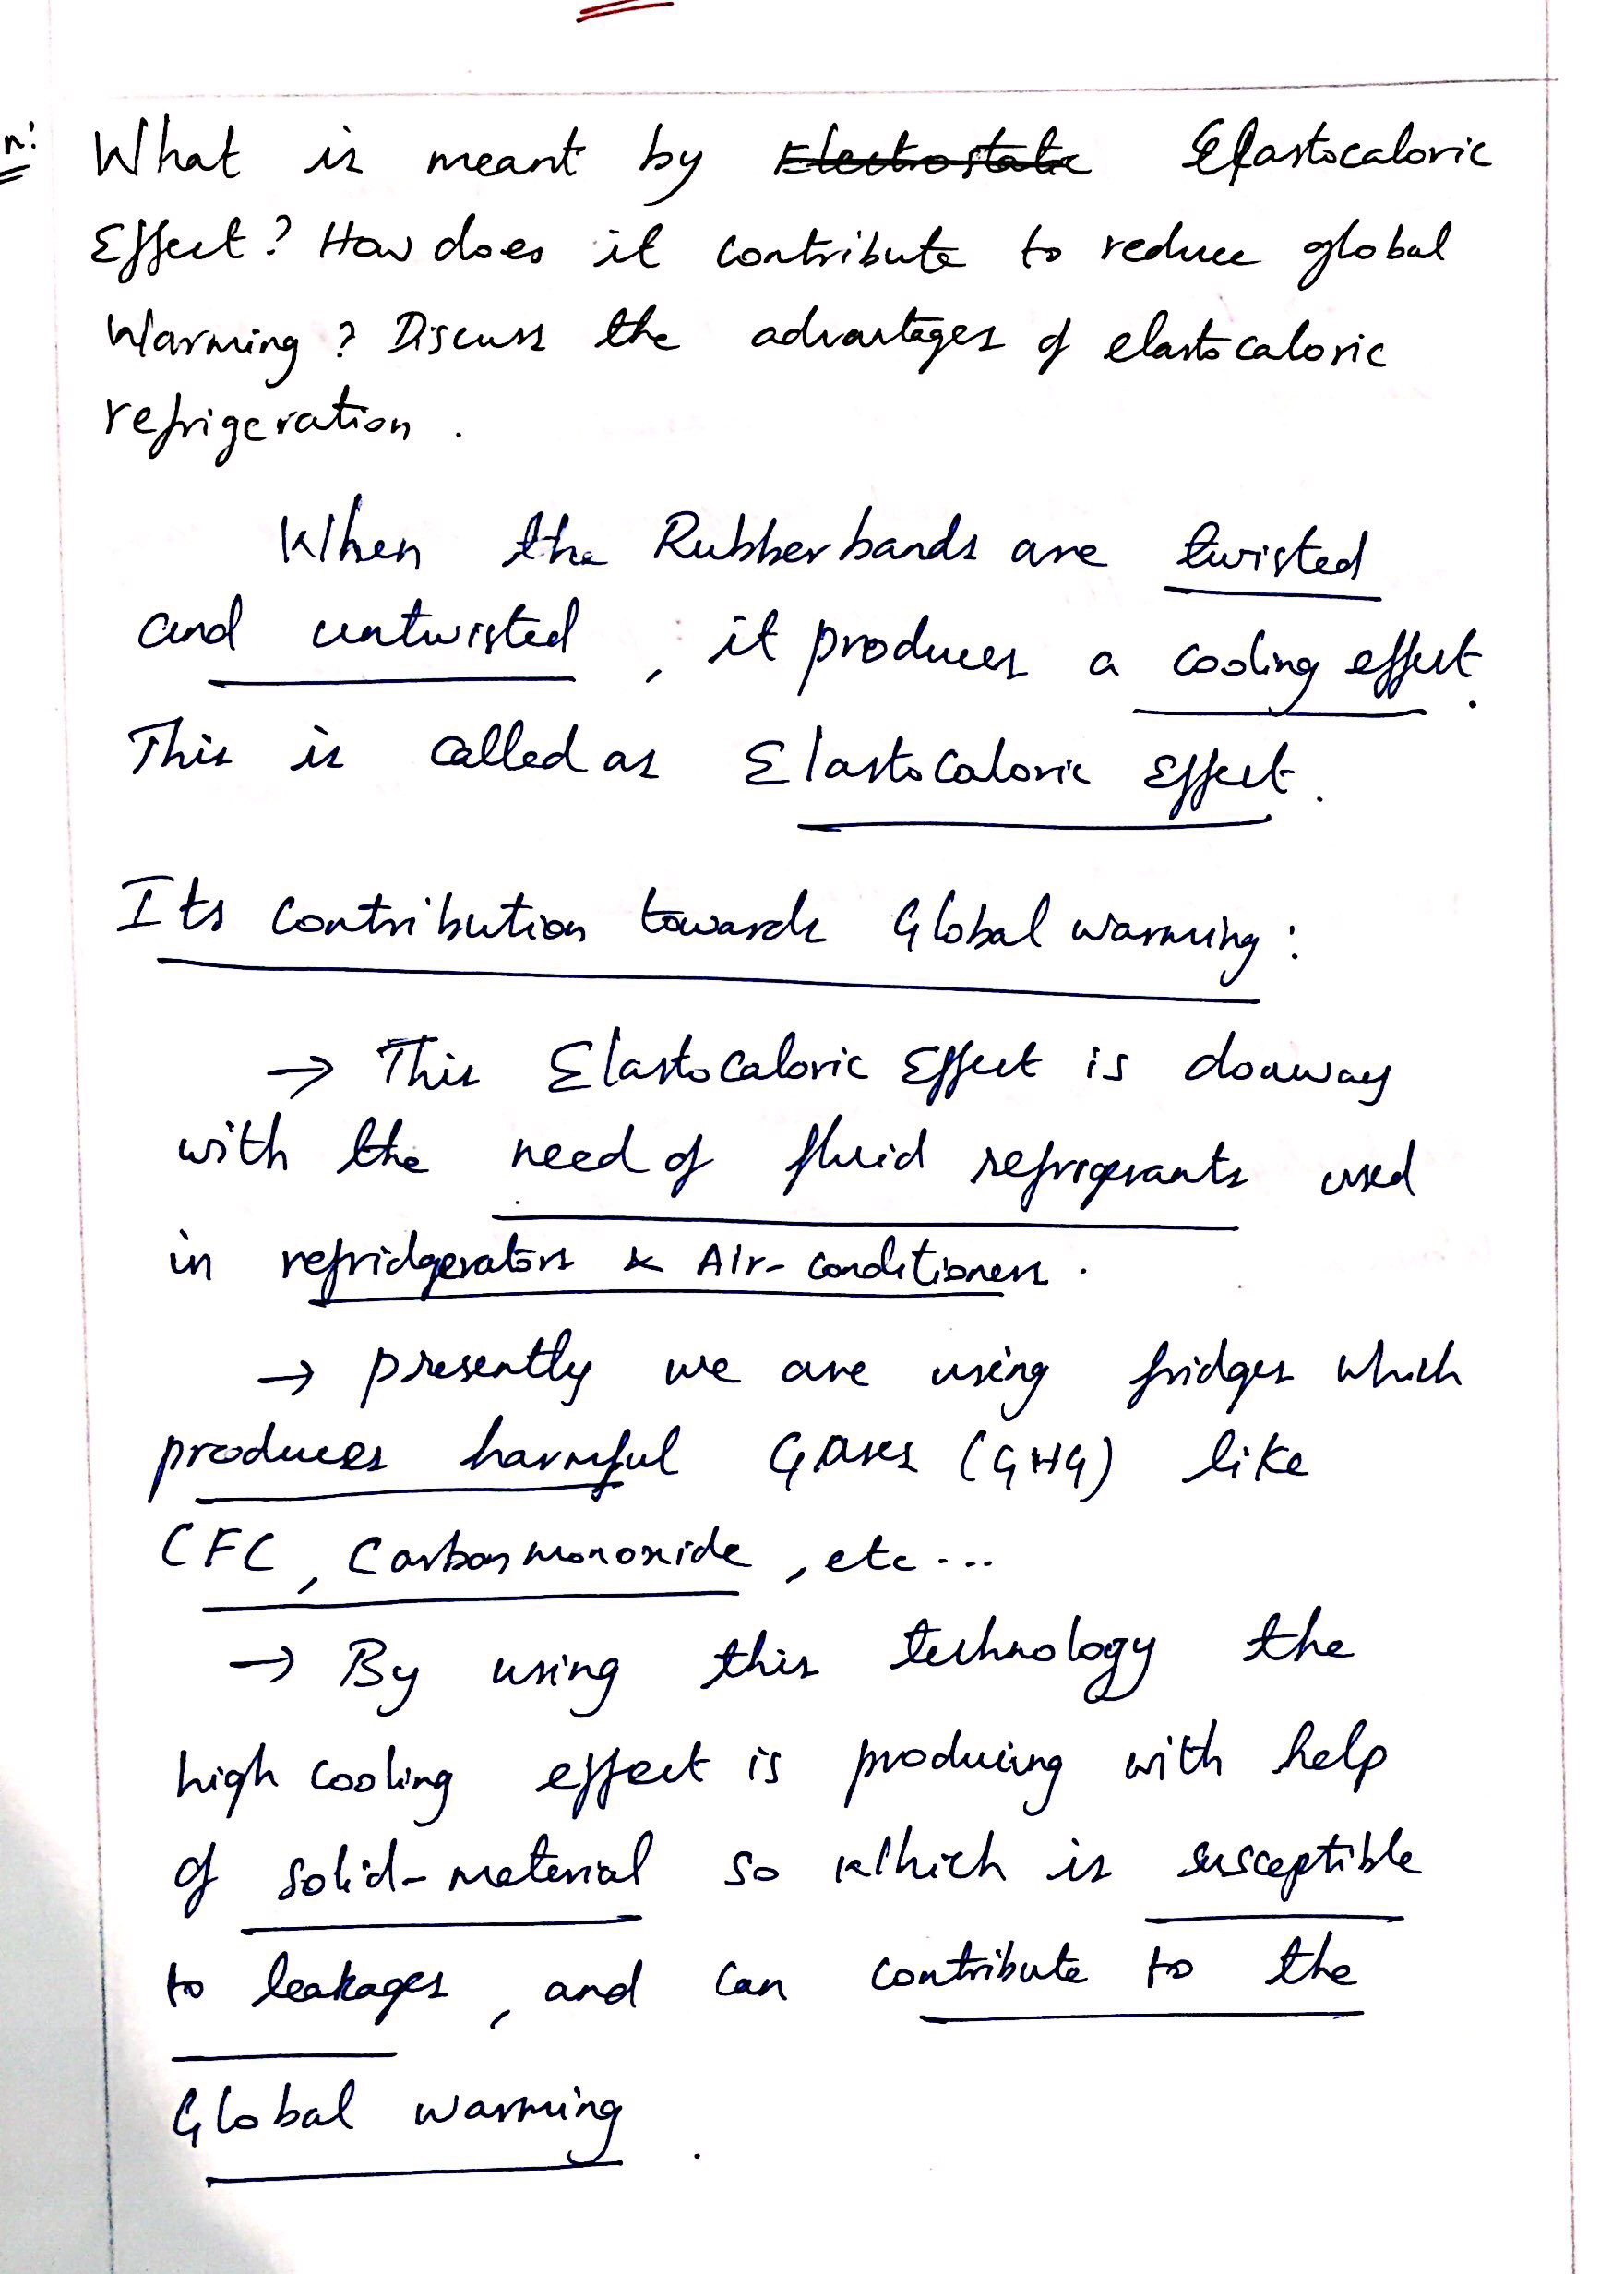 n:
What is meant by Electrostatic Elastocaloric
Effect? How does it contribute to reduce global
Warming? Discuss the advantages of elastocaloric
refrigeration.
When the Rubber bands are twisted
and untwisted, it produces a cooling effect.
This is called as Elastocaloric Effect.
Its contribution towards Global warming:
→ This Elastocaloric Effect is doaway
with the need of fluid refrigerants used
in refridgerators & Air-conditioners.
→ presently we are using fridges which
produces harmful Gases (GHG) like
CFC, Carbonmonoxide, etc...
→ By using this technology the
high cooling effect is producing with help
of solid-material so which is susceptible
to leakages, and can contribute to the
Global warming.